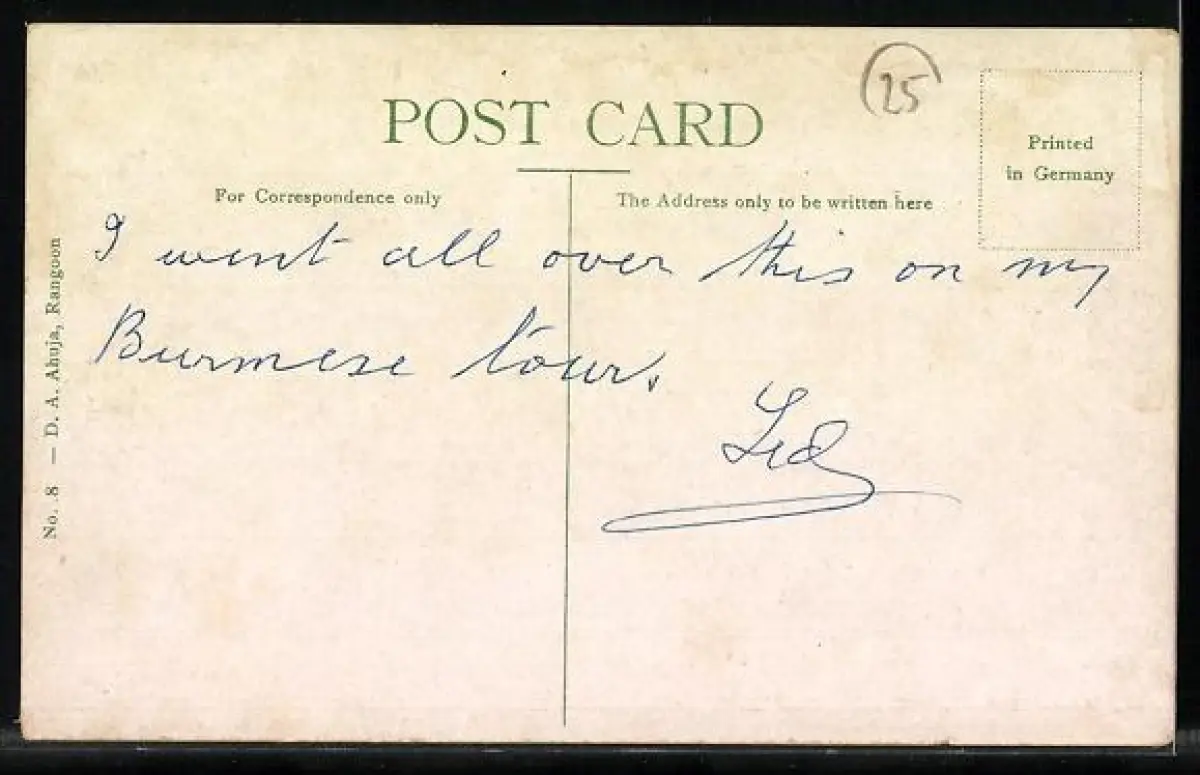 25
POST CARD
Printed
in Germany
For Correspondence only
The Address only to be written here
I went all over this on my
Burmese tour.
No. 8 — D. A. Ahuja, Rangoon